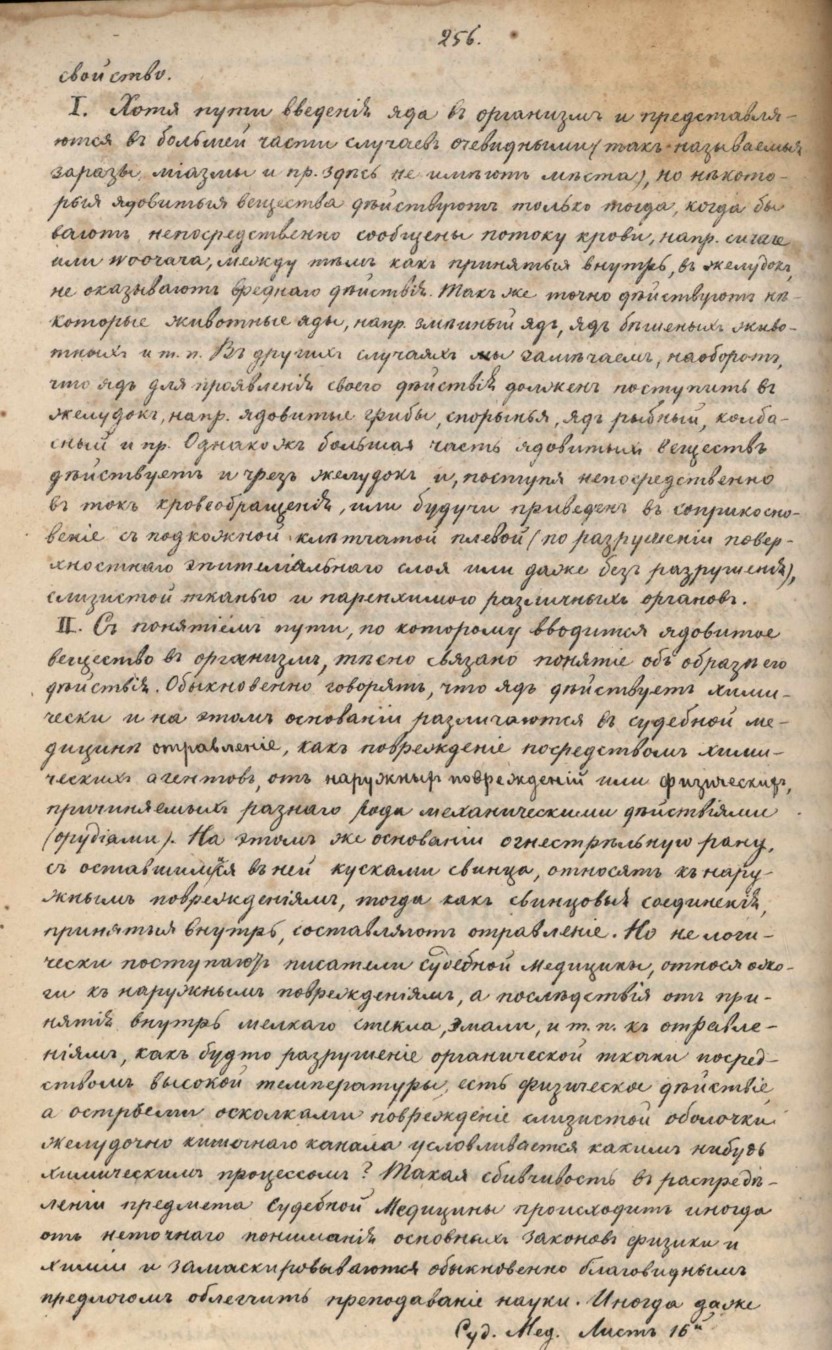 256.
свойство.
I. Хотя пути введенія яда въ организмъ и представля-
ются въ большей части случаевъ очевидными (такъ называемыя
заразы, міазмы и пр. здѣсь не имѣютъ мѣста), но нѣкото-
рыя ядовитыя вещества дѣйствуютъ только тогда, когда бы
ваютъ непосредственно сообщены потоку крови, напр.
или между тѣмъ какъ принятыя внутрь, въ желудокъ,
не оказываютъ вреднаго дѣйствія. Такъ же точно дѣйствуютъ нѣ-
которые животные яды, напр. змѣиный ядъ, ядъ бѣшеныхъ живо-
тныхъ и т. п. Въ другихъ случаяхъ мы замѣчаемъ, наоборотъ,
что ядъ для проявленія своего дѣйствія долженъ поступить въ
желудокъ, напр. ядовитые грибы, спорынья, ядъ рыбный, колба-
сный и пр. Однакожъ большая часть ядовитыхъ веществъ
дѣйствуетъ и чрезъ желудокъ и, поступя непосредственно
въ токъ кровеобращенія, или будучи приведенъ въ соприкосно-
веніе съ подкожной клѣтчатой плевой (по разрушеніи повер-
хностнаго эпителіальнаго слоя или даже безъ разрушенія),
слизистой тканью и паренхимою различныхъ органовъ.
II. Съ понятіемъ пути, по которому вводится ядовитое
вещество въ организмъ, тѣсно связано понятіе объ образѣ его
дѣйствія. Обыкновенно говорятъ, что ядъ дѣйствуетъ хими-
чески и на этомъ основаніи различаются въ судебной ме-
дицинѣ отравленіе, какъ поврежденіе посредствомъ хими-
ческихъ агентовъ, отъ наружныхъ поврежденій или физическихъ,
причиняемыхъ разнаго рода механическими дѣйствіями
(орудіами). На этомъ же основаніи огнестрѣльную рану,
съ оставшимися въ ней кусками свинца, относятъ къ нару-
жнымъ поврежденіямъ, тогда какъ свинцовыя соединенія,
принятыя внутрь, составляютъ отравленіе. Но не логи-
чески поступаютъ писатели Судебной Медицины, относя ожо-
ги къ наружнымъ поврежденіямъ, а послѣдствія отъ при-
нятія внутрь мелкаго стекла, эмали, и т. п. къ отравле-
ніямъ, какъ будто разрушеніе органической ткани посред-
ствомъ высокой температуры, есть физическое дѣйствіе
а острыми осколками поврежденіе слизистой оболочки
желудочно кишечнаго канала условливается какимъ нибудь
химическимъ процессомъ? Такая сбивчивость въ распредѣ-
леніи предмета Судебной Медицины происходитъ иногда
отъ неточнаго пониманія основныхъ законовъ физики и
химіи и замаскировываются обыкновенно благовиднымъ
предлогомъ облегчить преподаваніе науки. Иногда даже
Суд. Мед. Листъ 16й